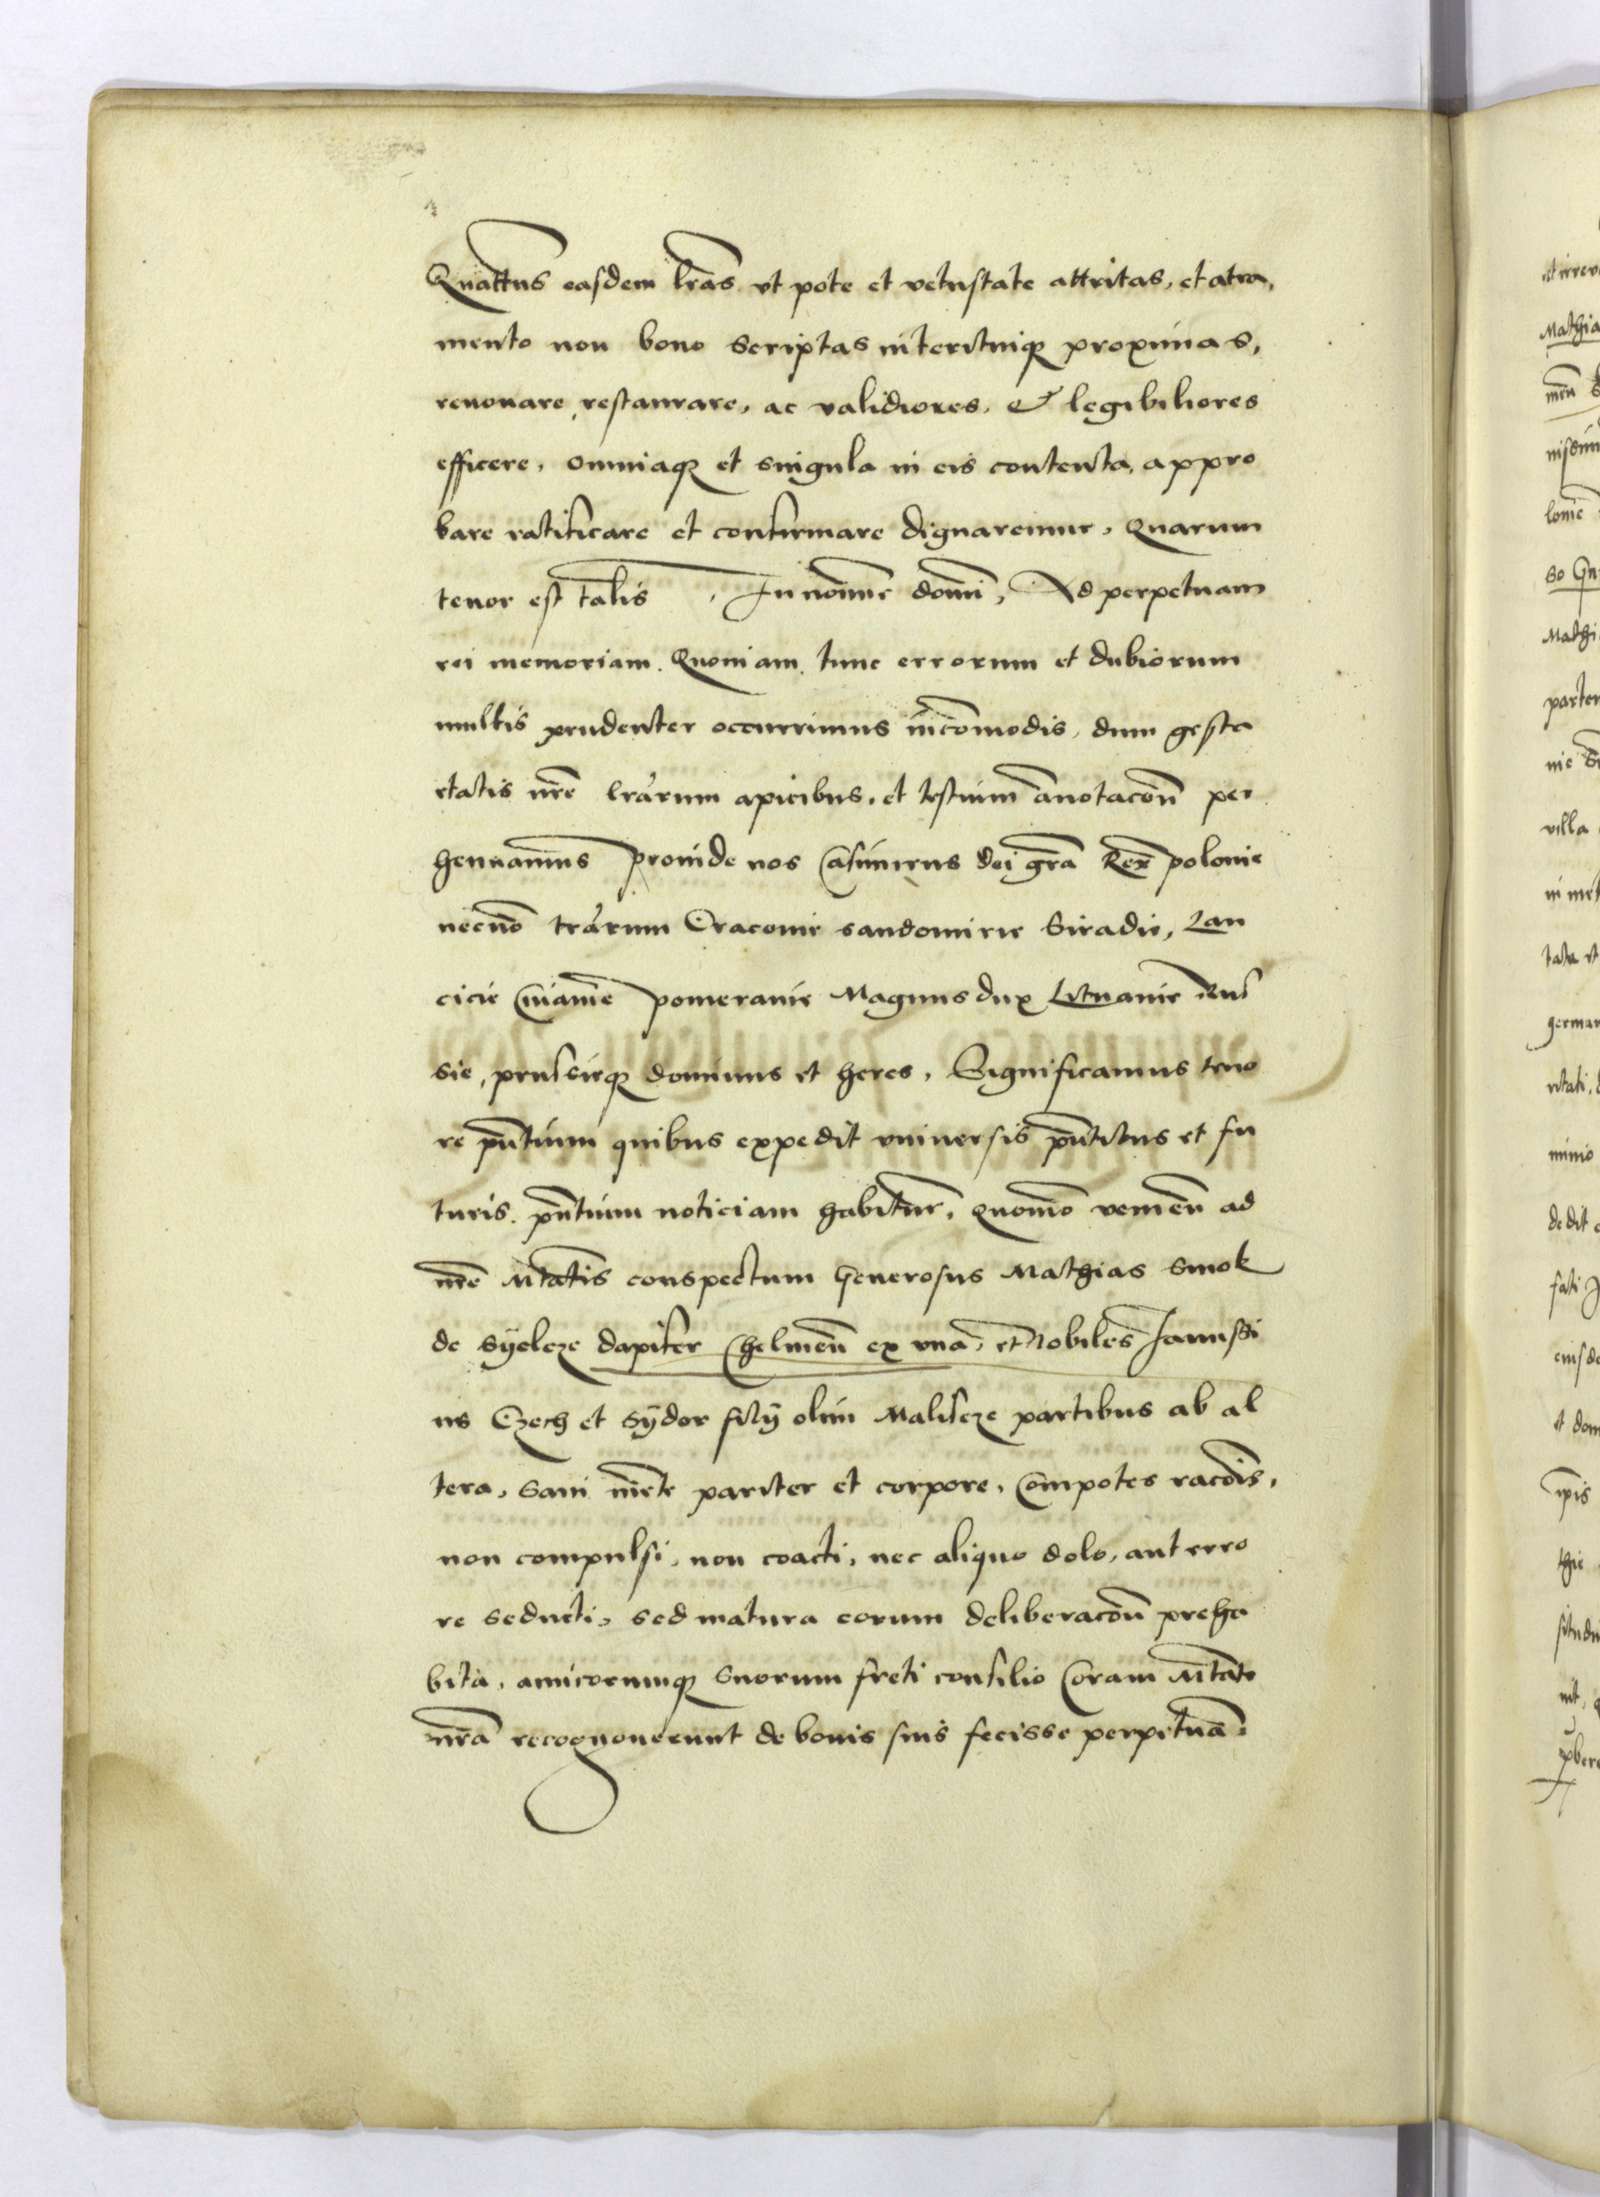 Quattus easdem lr̄as vt pote et vetustate attritas, et atra,
mento non bono scriptas interituiqꝫ proximas,
renouare, restaurare, ac validiores, & legibiliores
efficere, omniaqꝫ et singula in eis contenta, appro
bare ratificare et confirmare dignaremur, Quarum
tenor est talis. In nomīe domī, Ad perpetuam
rei memoriam. Quoniam tunc errorum et dubiorum
multis prudenter occurrimus incōmodis, dum gesta
etatis nr̄e lrārum apicibus, et testium ānotacōn per
hennamus proinde nos Casimirus dei gr̄a Rex polonie
necnō trārum Cracouie sandomirie Siradie, Lan
cicie Cuiauie pomeranie Magnus dux Lituanie Rus
sie, prussieqꝫ dominus et heres, Significamus teno
re pn̄tium quibus expedit vniuersis pn̄tibus et fu
turis. pn̄tium noticiam habitur̄, Quomō venien̄ ad
nr̄e Mtatis conspectum Generosus Mathias Smok
de Syelcze dapifer Chelmen̄ ex vna, et Nobiles Janussi
us Czech et Sÿdor filÿ olim Malischcze partibus ab al
tera, sani mēte pariter et corpore, Compotes racōis,
non compulsi, non coacti, nec aliquo dolo, aut erro
re seducti, sed matura eorum deliberacōn preha
bita, amicorumqꝫ suorum freti consilio Coram Mtate
nr̄a recognouerunt de bonis suis fecisse perpetuā.
et irrev
Mathia
men̄
Mathi
villa
german
dedit
et dom
thie